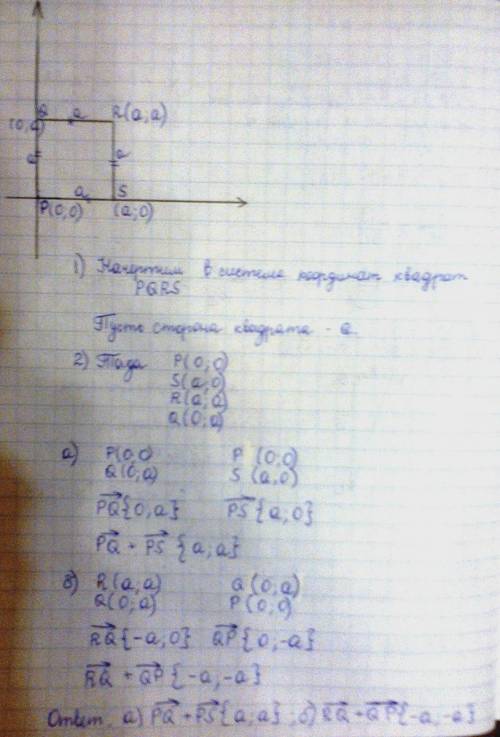 Q a R(a;a)
(0,a)
a a
a S
P(0;0) (a;0)
1) Начертим в системе координат квадрат
PQRS
Пусть сторона квадрата - a.
2) Тогда P(0;0)
S(a;0)
R(a;a)
Q(0;a)
а) P(0;0) P (0;0)
Q(0;a) S (a;0)
PQ{0,a} PS{a;0}
PQ + PS {a;a}
б) R(a;a) Q(0;a)
Q(0;a) P(0;0)
RQ{-a,0} QP{0,-a}
RQ + QP{-a,-a}
Ответ, а) PQ + PS{a;a}; б) RQ + QP{-a,-a}